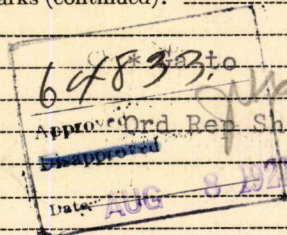 arks (continued).
64833.
to
Approved Ord Rep Sh
Disapproved
Date AUG 8 192